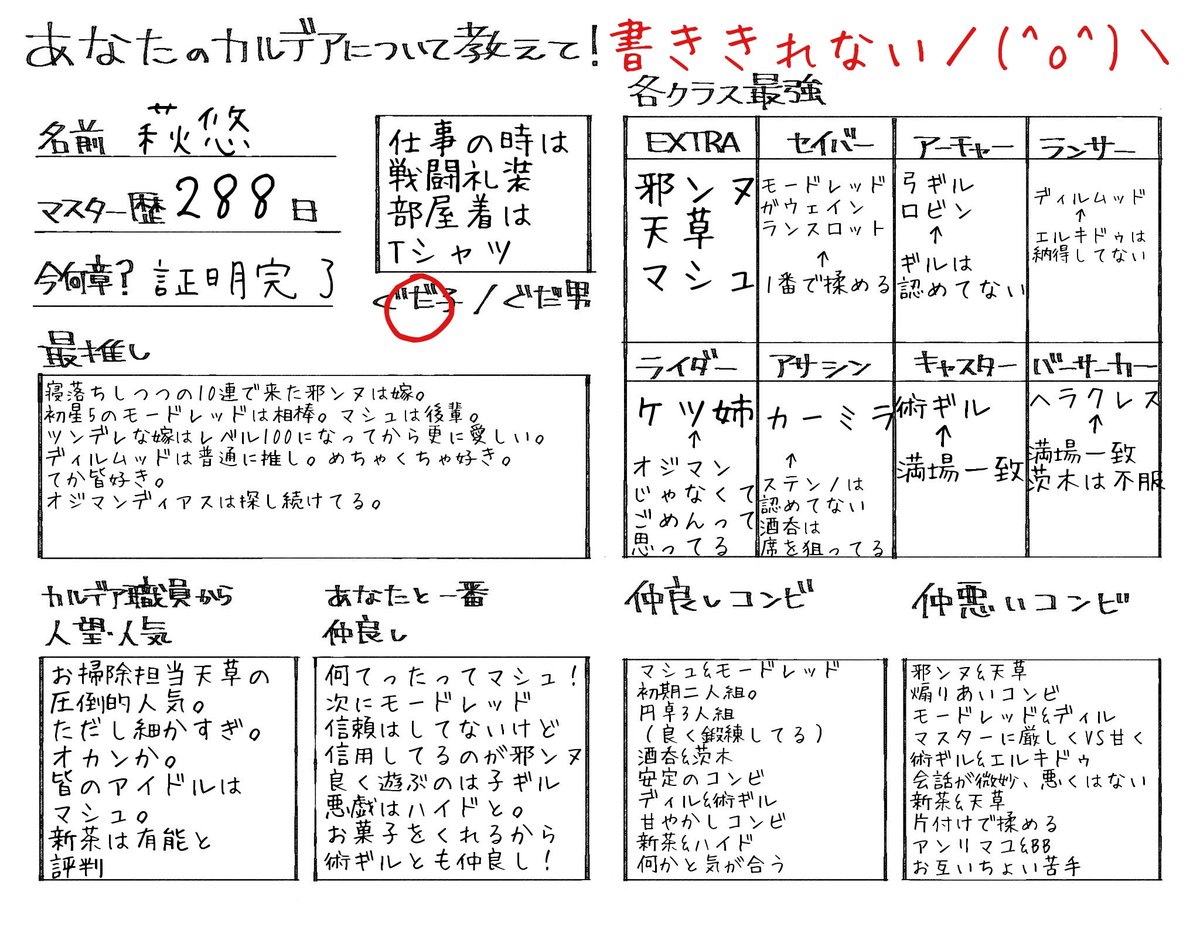 あなたのカルデアについて教えて！書ききれない／(^o^)＼
名前 萩悠
マスター歴 288日
今何章？証明完了
仕事の時は
戦闘礼装
部屋着は
Tシャツ
ぐだ子/ぐだ男
最推し
寝落ちしつつの10連で来た邪ンヌは嫁。
初星5のモードレッドは相棒。マシュは後輩。
ツンデレな嫁はレベル100になってから更に愛しい。
ディルムッドは普通に推し。めちゃくちゃ好き。
てか皆好き。
オジマンディアスは探し続けてる。
各クラス最強
EXTRA
邪ンヌ
天草
マシュ
セイバー
モードレッド
ガウェイン
ランスロット
↑
1番で揉める
アーチャー
弓ギル
ロビン
↑
ギルは
認めてない
ランサー
ディルムッド
↑
エルキドゥは
納得してない
ライダー
ケツ姉
↑
オジマン
じゃなくて
ごめんって
思ってる
アサシン
カーミラ
↑
ステンノは
認めてない
酒呑は
席を狙ってる
キャスター
術ギル
↑
満場一致
バーサーカー
ヘラクレス
↑
満場一致
茨木は不服
カルデア職員から
人望・人気
お掃除担当天草の
圧倒的人気。
ただし細かすぎ。
オカンか。
皆のアイドルは
マシュ。
新茶は有能と
評判
あなたと一番
仲良し
何てったってマシュ！
次にモードレッド
信頼はしてないけど
信用してるのが邪ンヌ
良く遊ぶのは子ギル
悪戯はハイドと。
お菓子をくれるから
術ギルとも仲良し！
仲良しコンビ
マシュ&モードレッド
初期二人組。
円卓3人組
（良く鍛練してる）
酒呑&茨木
安定のコンビ
ディル&術ギル
甘やかしコンビ
新茶&ハイド
何かと気が合う
仲悪いコンビ
邪ンヌ&天草
煽りあいコンビ
モードレッド&ディル
マスターに厳しくVS甘く
術ギル&エルキドゥ
会話が微妙、悪くはない
新茶&天草
片付けで揉める
アンリマユ&BB
お互いちょい苦手